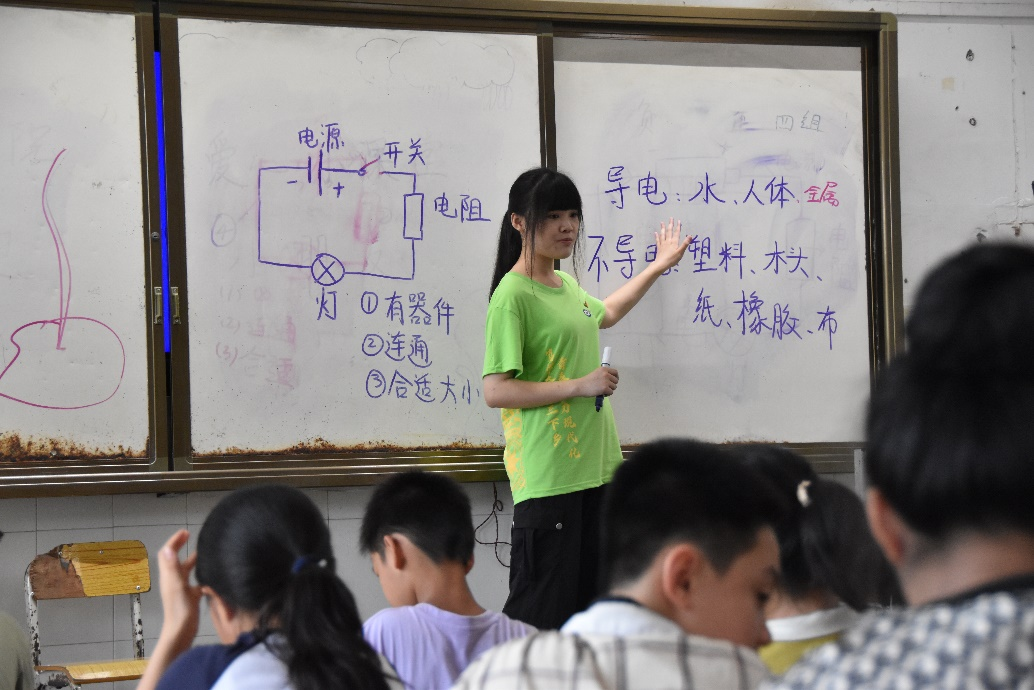 电源
开关
- +
电阻
灯
①有器件
②连通
③合适大小
导电：水、人体、金属
不导电：塑料、木头、
纸、橡胶、布
四组